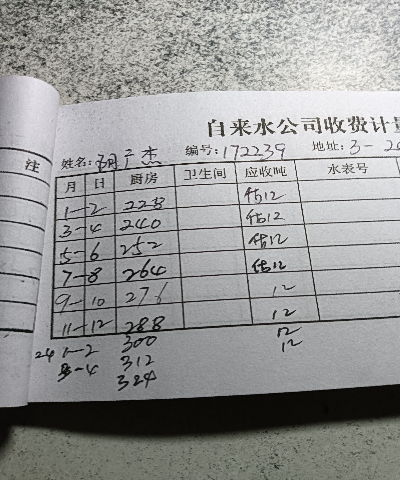 自来水公司收费计量
注 姓名: 广杰 编号: 172239 地址: 3-20
月 日 厨房 卫生间 应收吨 水表号
1-2 228 估12
3-4 240 估12
5-6 252 估12
7-8 264 估12
9-10 276 12
11-12 288 12
24 1-2 300 12
3-4 312 12
324